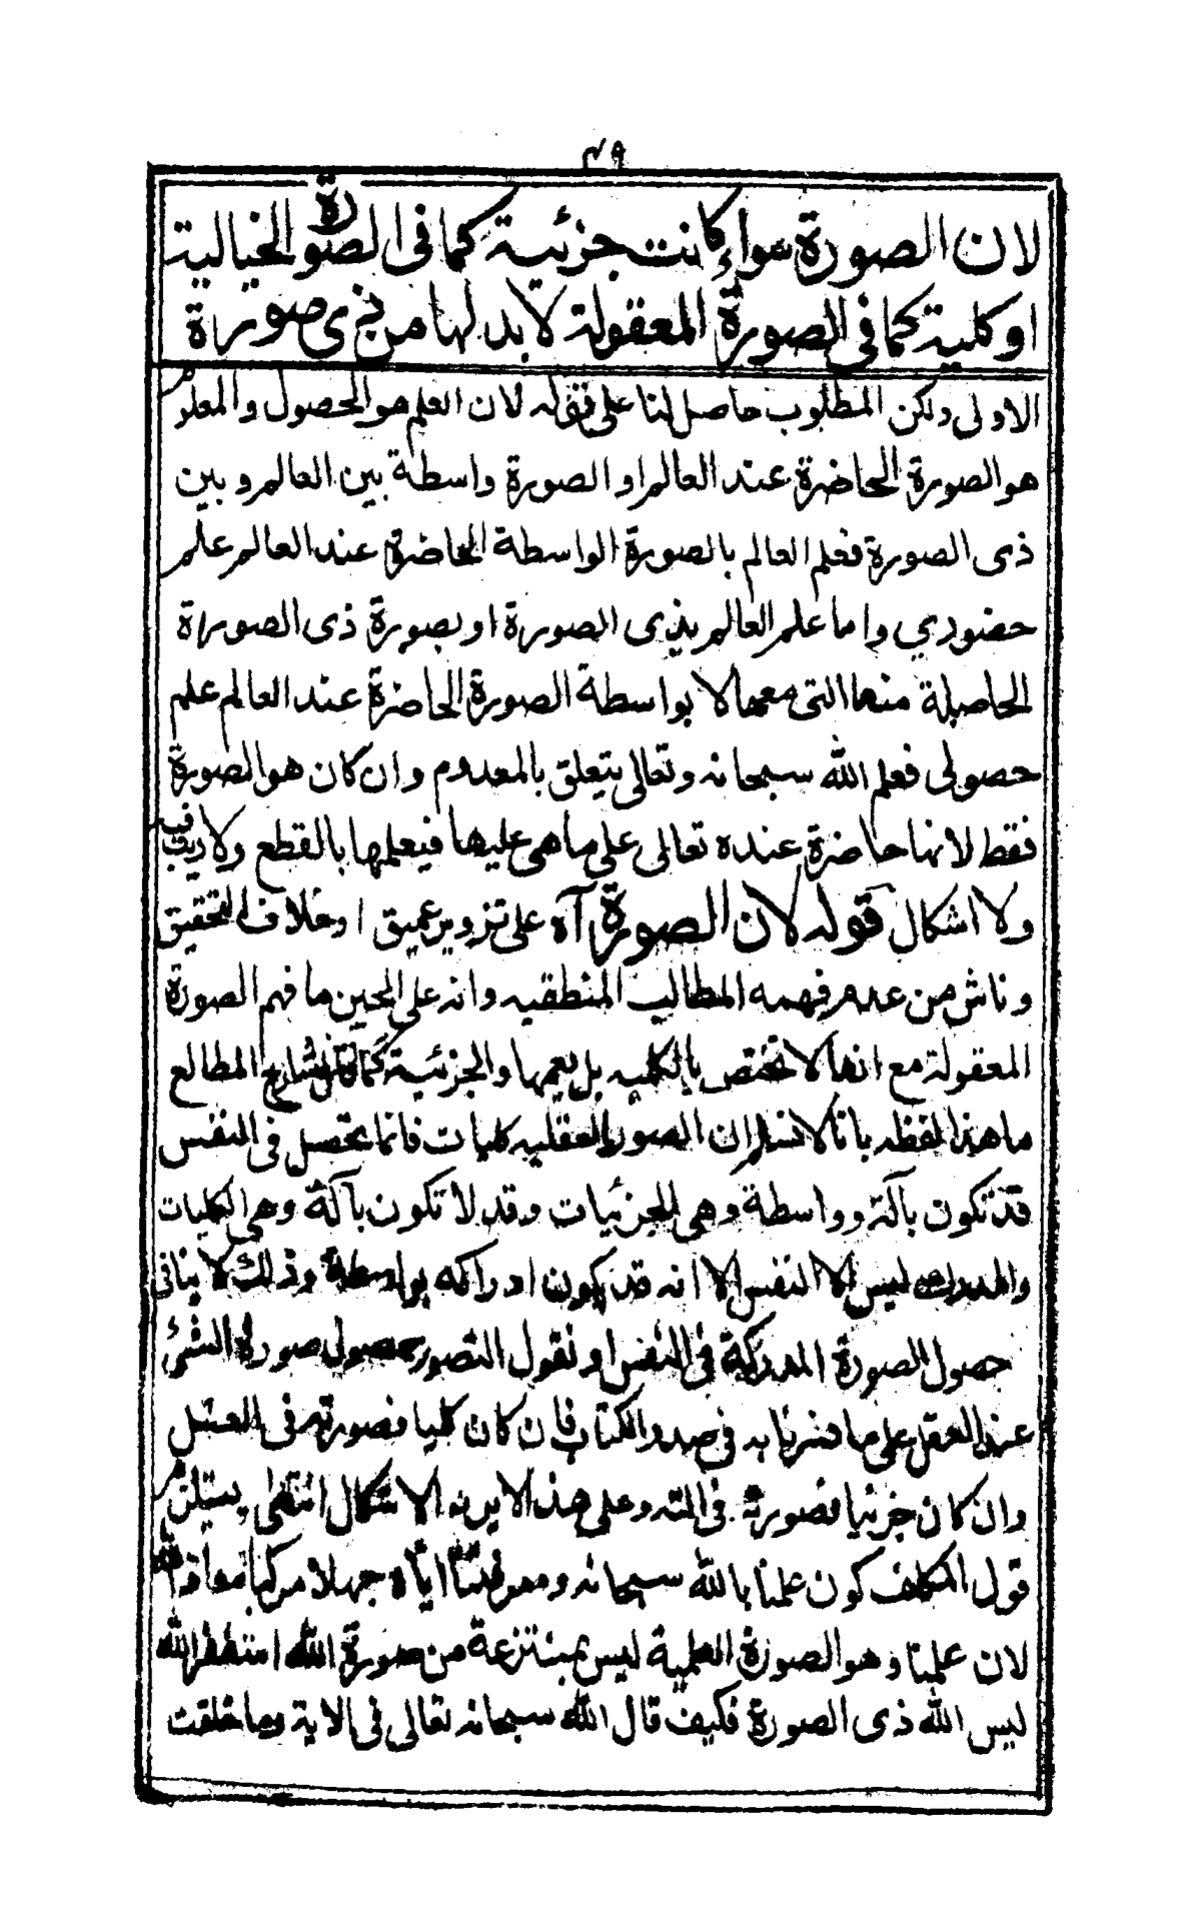 ٧٩
لان الصورة سواء كانت جزئية كما فى الصورة الخيالية
او كلية كما فى الصورة المعقولة لا بد لها من ذى صورة
الاولى ولكن المطلوب حاصل لنا على قوله لان العلم هو الحصول والمعلوم
هو الصورة الحاضرة عند العالم او الصورة واسطة بين العالم وبين
ذى الصورة فعلم العالم بالصورة الواسطة الحاضرة عند العالم علم
حضوري واما علم العالم بذى الصورة او بصورة ذى الصورة
الحاصلة منها التى معها لا بواسطة الصورة الحاضرة عند العالم علم
حصولى فعلم الله سبحانه وتعالى يتعلق بالمعدوم وان كان هو الصورة
فقط لانها حاضرة عنده تعالى على ماهى عليها فيعلمها بالقطع ولا ريب فيه
ولا اشكال قوله لان الصورة آه على تزوير عميق او خلاف التحقيق
وناش من عدم فهمه المطالب المنطقيه وانه على الحين ما فهم الصورة
المعقولة مع انها لا تختص بالكليه بل يعمها والجزئية كما قال شارح المطالع
ما هذا لفظه بانا لا نسلم ان الصور العقليه كليات فانما تحصل فى النفس
قد تكون بآلة وواسطة وهى الجزئيات وقد لا تكون بآلة وهى الكليات
والمدرك ليس الا النفس الا انه قد يكون ادراكه بواسطة وذلك لا ينافى
حصول الصورة المدركة فى النفس او نقول التصور حصول صورة الشئ
عند العقل على ما فى صدر الكتاب فان كان كليا فصورته فى العقل
وان كان جزئيا فصورته فى آلته وعلى هذا لا يرد الاشكال انتهى يستلزم
قول المكلف كون علمنا بالله سبحانه ومعرفتنا اياه جهلا مركبا معاذ الله
لان علمنا وهو الصورة العلمية ليس بمنتزعة من صورة الله استغفر الله
ليس الله ذى الصورة فكيف قال الله سبحانه تعالى فى الاية وما خلقت